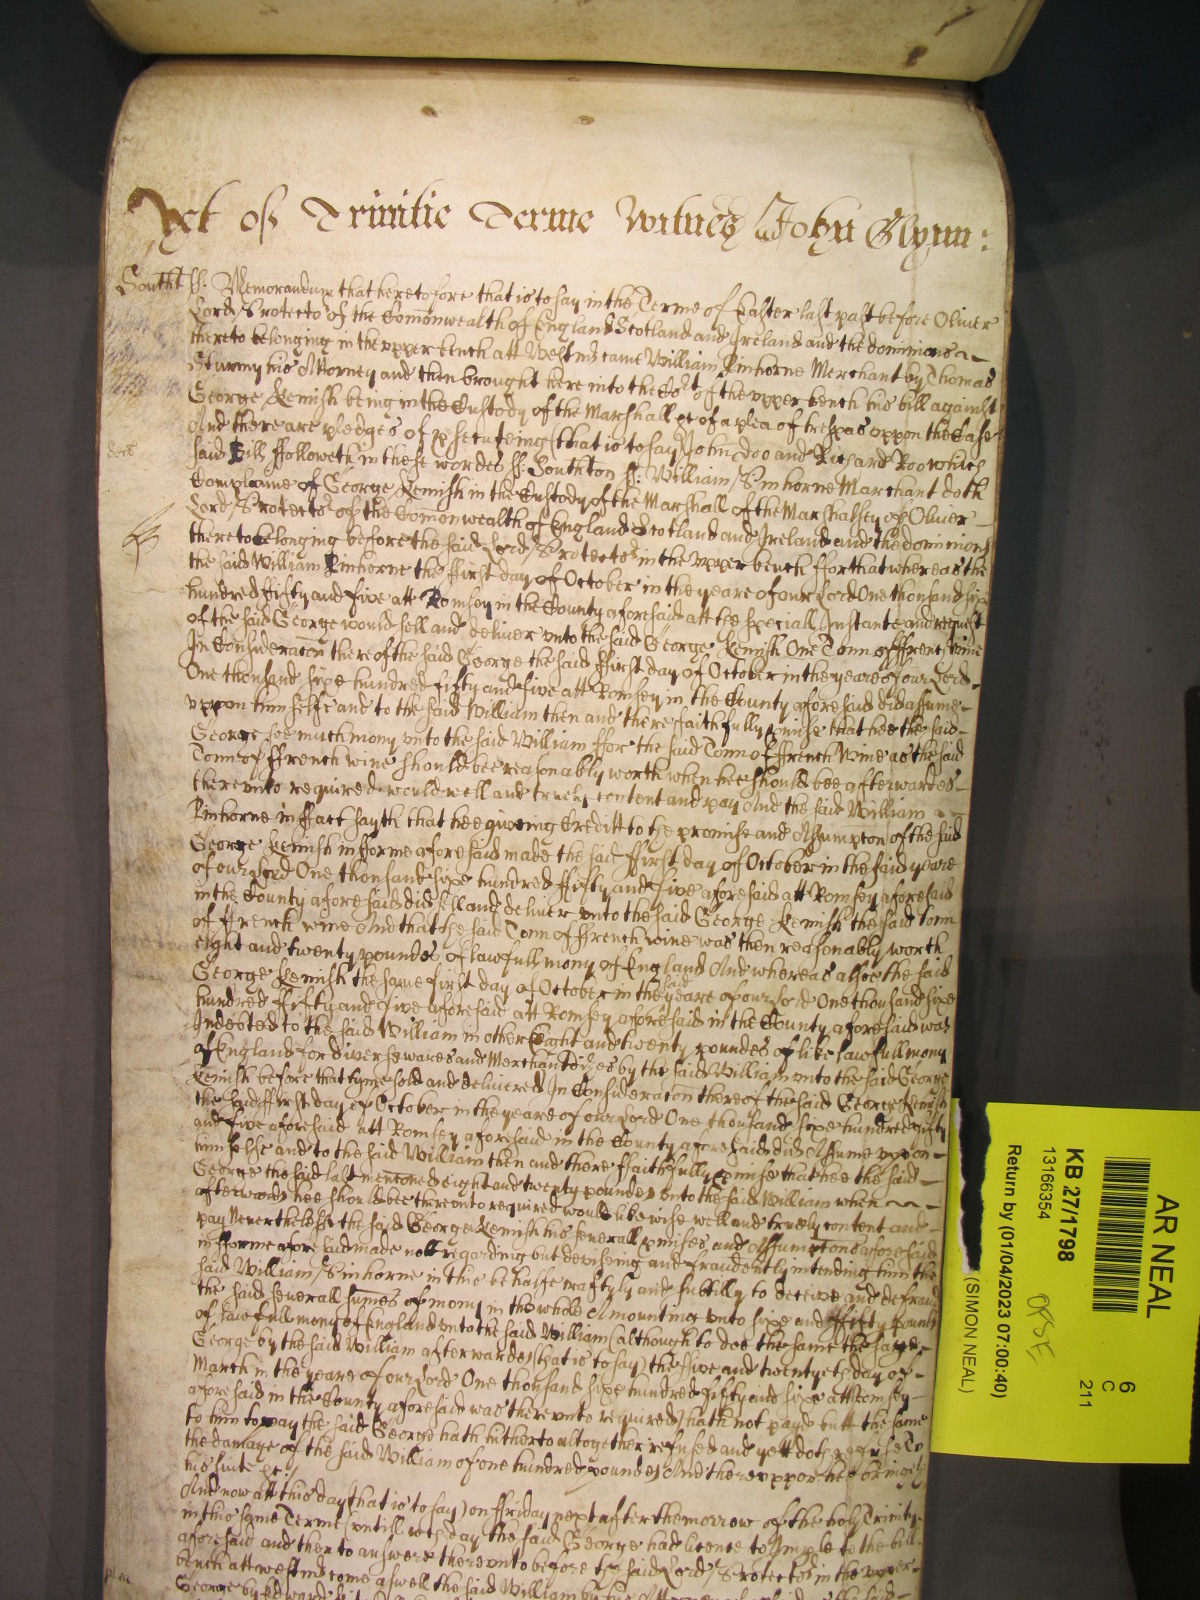 Yet of Trinitie Terme Witnes John Glynn:
Southt ss. Memorandum that heretofore that is to say in the Terme of Easter last past before Oliver
Lord Protector of the Comonwealth of England Scotland and Ireland and the dominions
thereto belonging in the upper bench att Westmr came William Pinhorne Merchant by Thomas
Sturmy his Attorney and then brought here into the Cort of the upper bench his bill against
George Kemish being in the Custody of the Marshall &c of a plea of trespas uppon the Case
And there are pledges of psecuteing (that is to say) John Doo and Richard Roo which
said Bill ffolloweth in these wordes ss. Southton ss: William Pinhorne Marchant doth
Complaine of George Kemish in the Custody of the Marshall of the Marshalsey of Oliver
Lord Protector of the Comonwealth of England Scotland and Ireland and the dominions
thereto belonging before the said Lord Protector in the upper bench ffor that whereas the
the said William Pinhorne the ffirst day of October in the yeare of our Lord One thousand six
hundred fifty and five att Romsey in the County aforesaid att the speciall Instante and request
of the said George would sell and deliver unto the said George Kemish One Tonn of ffrench wine
In Consideracon thereof the said George the said ffirst day of October in the yeare of our Lord
One thousand sixe hundred fifty and five att Romsey in the County aforesaid did assume
uppon himselfe and to the said William then and there faithfully pmise that hee the said
George soe much mony unto the said William ffor the said Tonn of ffrench Wine as the said
Tonn of ffrench wine should bee reasonably worth when hee should bee afterwardes
thereunto required would well and truely content and pay And the said William
Pinhorne in ffact sayth that hee giveing Creditt to the promise and Assumpton of the said
George Kemish in fforme aforesaid made the said ffirst day of October in the said yeare
of our Lord One thousand sixe hundred ffifty and five aforesaid att Romsey aforesaid
in the County aforesaid did sell and deliver unto the said George Kemish the said tonn
of ffrench wine And that the said Tonn of ffrench wine was then reasonably worth
eight and twenty poundes of lawfull mony of England And whereas alsoe the said
George Kemish the same first day of October in the said yeare of our Lord One thousand sixe
hundred ffifty and five aforesaid att Romsey aforesaid in the County aforesaid was
Indebted to the said William in other Eight and twenty poundes of like lawfull mony
of England for divers wares and Merchandizes by the said William unto the said George
Kemish before that tyme sold and delivered In Consideracon thereof the said George Kemish
the said ffirst day of October in the yeare of our Lord One thousand sixe hundred fifty
and five aforesaid att Romsey aforesaid in the County aforesaid did Assume uppon
himselfe and to the said William then and there ffaithfully pmise that hee the said
George the said last mentoned eight and twenty poundes unto the said William when
afterwards hee should bee thereunto required would likewise well and truely content and
pay Nevertheless the said George Kemish his severall pmises and Assumptons aforesaid
in fforme aforesaid made nott regarding but devising and fraudently intending him the
said William Pinhorne in this behalfe craftyly and subtilly to deceive and defraud
the said severall sumes of mony in the whole Amounting unto sixe and ffifty pounds
of lawfull mony of England unto the said William (although to doe the same the said
George by the said William afterwardes (that is to say) the five and twentyeth day of
March in the yeare of our Lord One thousand sixe hundred fifty and sixe att Romsey
aforesaid in the County aforesaid was thereunto required) hath not payd butt the same
to him to pay the said George hath hitherto altogether refused and yett doth refuse To
the damage of the said William of one hundred poundes And thereuppon hee
his suite &c:/
And now att this day (that is to say) on ffriday next after the morrow of the holy Trinity
in this same Terme (untill wch day the said George had licence to Imple to the bill
aforesaid and ther to answere thereunto before the said Lord Protector in the upper
bench att westmr come aswell the said William by his Attorney aforesaid as the said
AR NEAL
KB 27/1798
13166354
Return by (01/04/2023 07:00:40)
(SIMON NEAL)
6
C
211